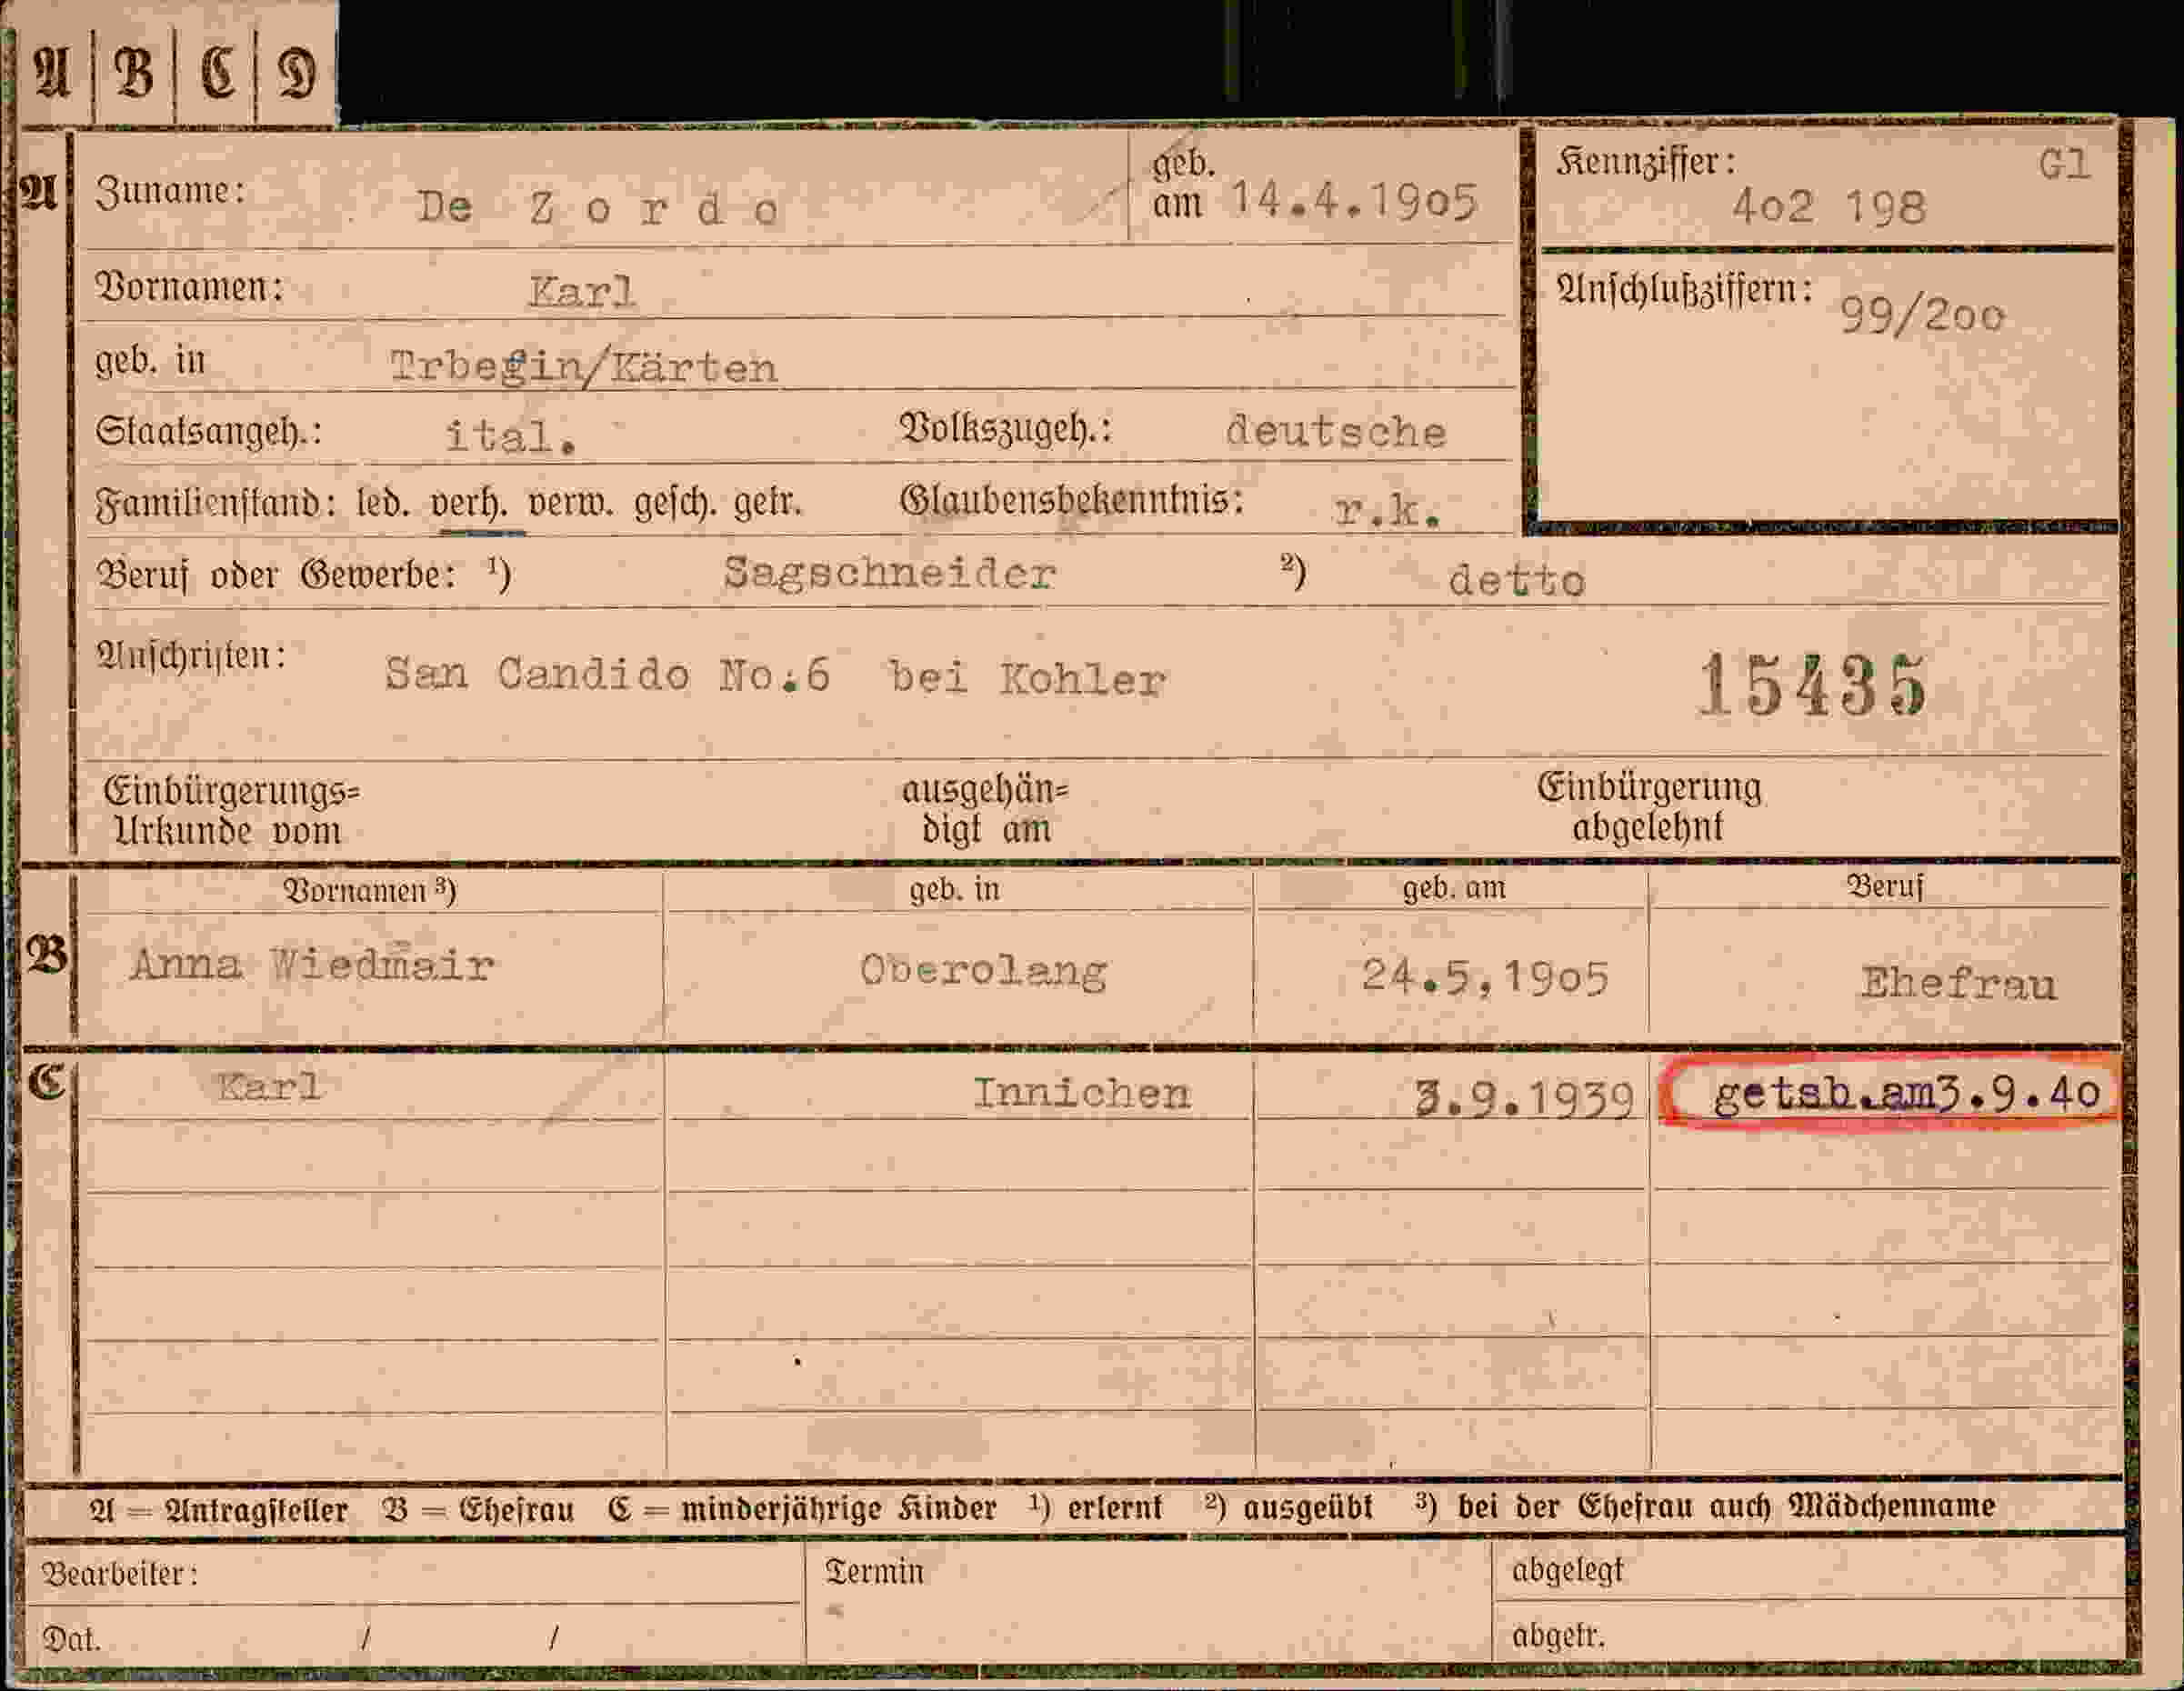 A B C D
A Zuname: De Zordo geb. am 14.4.1905 Kennziffer: Gl
402 198
Vornamen: Karl Anschlußziffern: 99/200
geb. in Trbegin/Kärten
Staatsangeh.: ital. Volkszugeh.: deutsche
Familienstand: led. verh. verw. gesch. getr. Glaubensbekenntnis: r.k.
Beruf oder Gewerbe: ¹) Sagschneider ²) detto
Anschriften: San Candido No.6 bei Kohler 15435
Einbürgerungs= ausgehän= Einbürgerung
Urkunde vom digt am abgelehnt
Vornamen ³) geb. in geb. am Beruf
B Anna Wiedmair Oberolang 24.5,1905 Ehefrau
C Karl Innichen 3.9.1939 getsb.am3.9.40
A = Antragsteller B = Ehefrau C = minderjährige Kinder ¹) erlernt ²) ausgeübt ³) bei der Ehefrau auch Mädchenname
Bearbeiter: Termin abgelegt
Dat. / / abgetr.